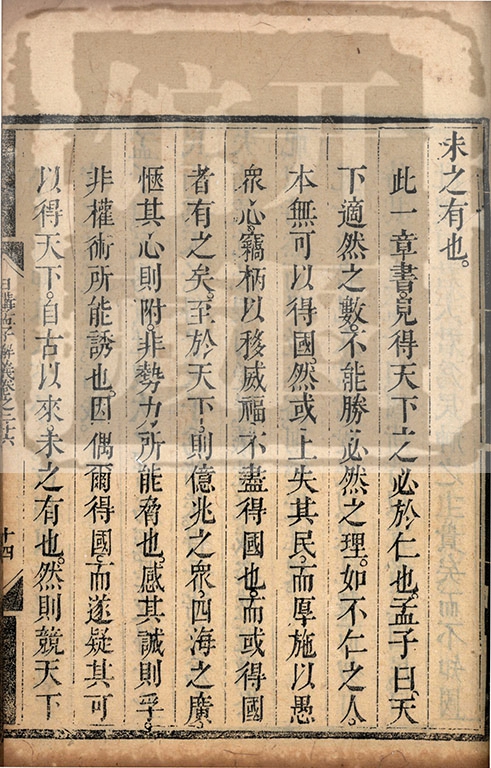 未之有也。
此一章書。見得天下之必於仁也。孟子曰。天
下適然之數。不能勝必然之理。如不仁之人。
本無可以得國。然或上失其民。而厚施以愚
眾心。竊柄以移威福。不盡得國也。而或得國
者有之矣。至於天下。則億兆之眾。四海之廣。
愜其心則附。非勢力所能脅也。感其誠則孚。
非權術所能誘也。因偶爾得國。而遂疑其可
以得天下。自古以來。未之有也。然則競天下
日講孟子解義卷之二十六
十四